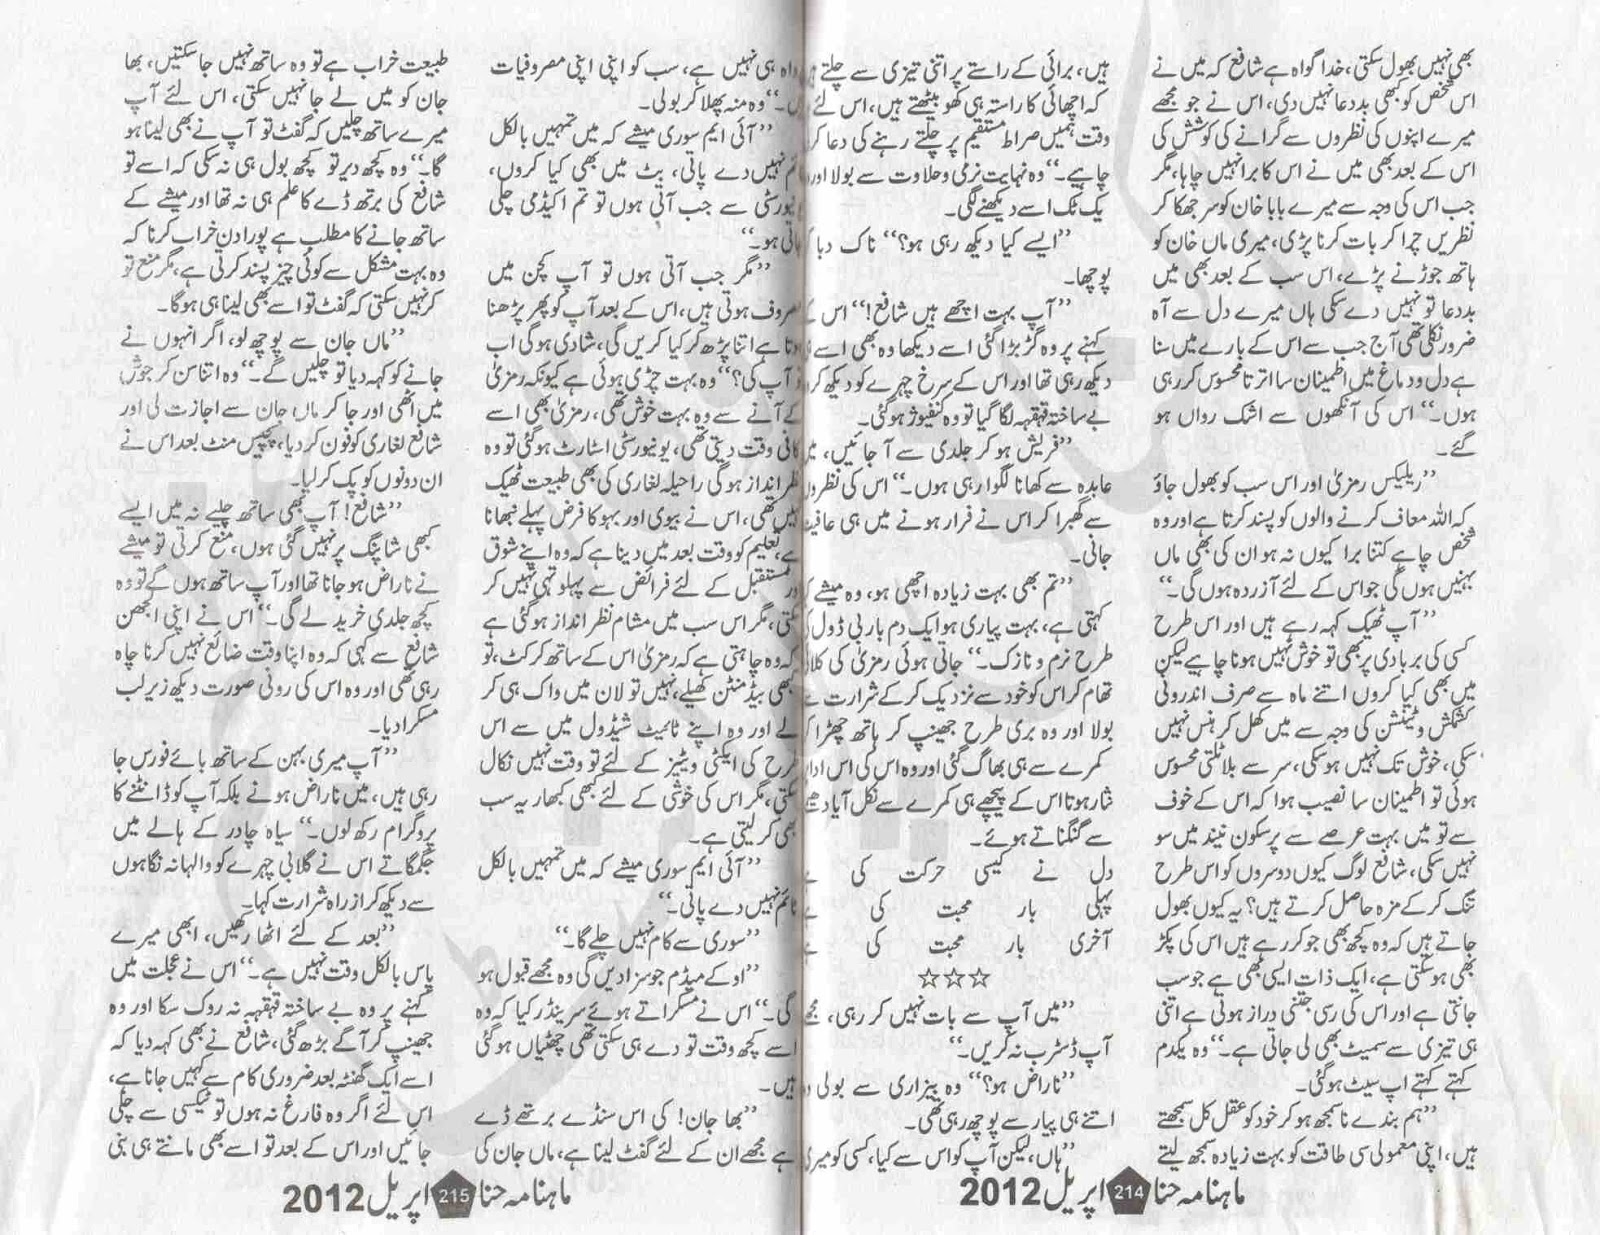 بھی نہیں بھول سکتی، خدا گواہ ہے شافع کہ میں نے
اس شخص کو بھی بددعا نہیں دی، اس نے جو مجھے
میرے اپنوں کی نظروں سے گرانے کی کوشش کی
اس کے بعد بھی میں نے اس کا برا نہیں چاہا، مگر
جب اس کی وجہ سے میرے بابا خان کو سر جھکا کر
نظریں چرا کر بات کرنا پڑی، میری ماں خان کو
ہاتھ جوڑنے پڑے، اس سب کے بعد بھی میں
بددعا تو نہیں دے سکی ہاں میرے دل سے آہ
ضرور نکلی تھی آج جب سے اس کے بارے میں سنا
ہے دل و دماغ میں اطمینان سا اترتا محسوس کر رہی
ہوں۔‘‘ اس کی آنکھوں سے اشک رواں ہو
گئے۔
’’ریلیکس رمزیٰ اور اس سب کو بھول جاؤ
کہ اللہ معاف کرنے والوں کو پسند کرتا ہے اور وہ
شخص چاہے کتنا برا کیوں نہ ہو ان کی بھی ماں
بہنیں ہوں گی جو اس کے لئے آزردہ ہوں گی۔‘‘
’’آپ ٹھیک کہہ رہے ہیں اور اس طرح
کسی کی بربادی پر بھی تو خوش نہیں ہونا چاہیے لیکن
میں بھی کیا کروں اتنے ماہ سے صرف اندرونی
کشمکش و ٹینشن کی وجہ سے میں کھل کر ہنس نہیں
سکی، خوش تک نہیں ہو سکی، سر سے بلا ٹلتی محسوس
ہوئی تو اطمینان سا نصیب ہوا کہ اس کے خوف
سے تو میں بہت عرصے سے پرسکون نیند میں سو
نہیں سکی، شافع لوگ کیوں دوسروں کو اس طرح
تنگ کر کے مزہ حاصل کرتے ہیں؟ یہ کیوں بھول
جاتے ہیں کہ وہ کچھ بھی جو کر رہے ہیں اس کی پکڑ
بھی ہو سکتی ہے، ایک ذات ایسی بھی ہے جو سب
جانتی ہے اور اس کی رسی جتنی دراز ہوتی ہے اتنی
ہی تیزی سے سمیٹ بھی لی جاتی ہے۔‘‘ وہ یکدم
کہتے کہتے اپ سیٹ ہو گئی۔
’’ہم بندے ناسمجھ ہو کر خود کو عقل کل سمجھتے
ہیں، اپنی معمولی سی طاقت کو بہت زیادہ سمجھ لیتے
ہیں، برائی کے راستے پر اتنی تیزی سے چلتے
کہ اچھائی کا راستہ ہی کھو بیٹھتے ہیں، اس لئے
وقت ہمیں صراط مستقیم پر چلتے رہنے کی دعا
چاہیے۔‘‘ وہ نہایت نرمی و حلاوت سے بولا اور
یک ٹک اسے دیکھنے لگی۔
’’ایسے کیا دیکھ رہی ہو؟‘‘ ناک دبا
پوچھا۔
’’آپ بہت اچھے ہیں شافع!‘‘ اس
کہنے پر وہ گڑبڑا گئی اسے دیکھا وہ بھی اسے
دیکھ رہی تھا اور اس کے سرخ چہرے کو دیکھ کر
بے ساختہ قہقہہ لگا گیا تو وہ کنفیوژ ہو گئی۔
’’فریش ہو کر جلدی سے آ جائیں،
عابدہ سے کھانا لگوا رہی ہوں۔‘‘ اس کی نظروں
سے گھبرا کر اس نے فرار ہونے میں ہی
جانی۔
’’تم بھی بہت زیادہ اچھی ہو، وہ میشے
کہتی ہے، بہت پیاری ہو ایک دم باربی ڈول
طرح نرم و نازک۔‘‘ جاتی ہوئی رمزیٰ کی
تھام کر اس کو خود سے نزدیک کر کے شرارت
بولا اور وہ بری طرح جھینپ کر ہاتھ چھڑا
کمرے سے ہی بھاگ گئی اور وہ اس کی اس
نثار ہوتا اس کے پیچھے ہی کمرے سے نکل آیا
سے گنگناتے ہوئے۔
دل نے کیسی حرکت کی
پہلی بار محبت کی
آخری بار محبت کی
☆☆☆
’’میں آپ سے بات نہیں کر رہی،
آپ ڈسٹرب نہ کریں۔‘‘
’’ناراض ہو؟‘‘ وہ بیزاری سے بولی
اتنے ہی پیار سے پوچھ رہی تھی۔
’’ہاں، لیکن آپ کو اس سے کیا، کسی کو میری
ماہنامہ حنا 214 اپریل 2012
ہی نہیں ہے، سب کو اپنی اپنی مصروفیات
۔‘‘ وہ منہ پھلا کر بولی۔
’’آئی ایم سوری میشے کہ میں تمہیں بالکل
نہیں دے پاتی، بٹ میں بھی کیا کروں،
سے جب آتی ہوں تو تم اکیڈمی چلی
ہو۔‘‘
’’مگر جب آتی ہوں تو آپ کچن میں
مصروف ہوتی ہیں، اس کے بعد آپ کو پھر پڑھنا
ہوتا ہے اتنا پڑھ کر کیا کریں گی، شادی ہو گی اب
آپ کی؟‘‘ وہ بہت چڑی ہوئی ہے کیونکہ رمزیٰ
کے آنے سے وہ بہت خوش تھی، رمزیٰ بھی اسے
کافی وقت دیتی تھی، یونیورسٹی اسٹارٹ ہو گئی تو وہ
نظر انداز ہو گی راحیلہ لغاری کی بھی طبیعت ٹھیک
نہیں تھی، اس نے بیوی اور بہو کا فرض پہلے نبھانا
ہے، تعلیم کو وقت بعد میں دینا ہے کہ وہ اپنے شوق
اور مستقبل کے لئے فرائض سے پہلو تہی نہیں کر
سکتی، مگر اس سب میں مشام نظر انداز ہو گئی ہے
کہ وہ چاہتی ہے کہ رمزیٰ اس کے ساتھ کرکٹ، تو
کبھی بیڈمنٹن کھیلے، نہیں تو لان میں واک ہی کر
لے اور وہ اپنے ٹائیٹ شیڈول میں سے اس
طرح کی ایکٹی ویٹیز کے لئے تو وقت نہیں نکال
سکتی، مگر اس کی خوشی کے لئے کبھی کبھار یہ سب
بھی کر لیتی ہے۔
’’آئی ایم سوری میشے کہ میں تمہیں بالکل
ٹائم نہیں دے پاتی۔‘‘
’’سوری سے کام نہیں چلے گا۔‘‘
’’اوکے میڈم جو سزا دیں گی وہ مجھے قبول ہو
گی۔‘‘ اس نے مسکراتے ہوئے سرینڈر کیا کہ وہ
اسے کچھ وقت تو دے ہی سکتی تھی چھٹیاں ہو گئی
ہیں۔
’’بھا جان! کی اس سنڈے برتھ ڈے
ہے مجھے ان کے لئے گفٹ لینا ہے، ماں جان کی
طبیعت خراب ہے تو وہ ساتھ نہیں جا سکتیں، بھا
جان کو میں لے جا نہیں سکتی، اس لئے آپ
میرے ساتھ چلیں کہ گفٹ تو آپ نے بھی لینا ہو
گا۔‘‘ وہ کچھ دیر تو کچھ بول ہی نہ سکی کہ اسے تو
شافع کی برتھ ڈے کا علم ہی نہ تھا اور میشے کے
ساتھ جانے کا مطلب ہے پورا دن خراب کرنا کہ
وہ بہت مشکل سے کوئی چیز پسند کرتی ہے، مگر منع تو
کر نہیں سکتی کہ گفٹ تو اسے بھی لینا ہی ہو گا۔
’’ماں جان سے پوچھ لو، اگر انہوں نے
جانے کو کہہ دیا تو چلیں گے۔‘‘ وہ اتنا سن کر جوش
میں اٹھی اور جا کر ماں جان سے اجازت لی اور
شافع لغاری کو فون کر دیا، پچیس منٹ بعد اس نے
ان دونوں کو پک کر لیا۔
’’شافع! آپ بھی ساتھ چلیے نہ میں ایسے
کبھی شاپنگ پر نہیں گئی ہوں، منع کرتی تو میشے
نے ناراض ہو جانا تھا اور آپ ساتھ ہوں گے تو وہ
کچھ جلدی خرید لے گی۔‘‘ اس نے اپنی الجھن
شافع سے کہی کہ وہ اپنا وقت ضائع نہیں کرنا چاہ
رہی تھی اور وہ اس کی روتی صورت دیکھ زیر لب
مسکرا دیا۔
’’آپ میری بہن کے ساتھ بائے فورس جا
رہی ہیں، میں ناراض ہونے بلکہ آپ کو ڈانٹنے کا
پروگرام رکھ لوں۔‘‘ سیاہ چادر کے ہالے میں
جگمگاتے اس نے گلابی چہرے کو والہانہ نگاہوں
سے دیکھ کر از راہ شرارت کہا۔
’’بعد کے لئے اٹھا رکھیں، ابھی میرے
پاس بالکل وقت نہیں ہے۔‘‘ اس نے عجلت میں
کہنے پر وہ بے ساختہ قہقہہ نہ روک سکا اور وہ
جھینپ کر آگے بڑھ گئی، شافع نے بھی کہہ دیا کہ
اسے ایک گھنٹہ بعد ضروری کام سے کہیں جانا ہے،
اس لئے اگر وہ فارغ نہ ہوں تو ٹیکسی سے چلی
جائیں اور اس کے بعد تو اسے بھی مانتے ہی بنی
ماہنامہ حنا 215 اپریل 2012